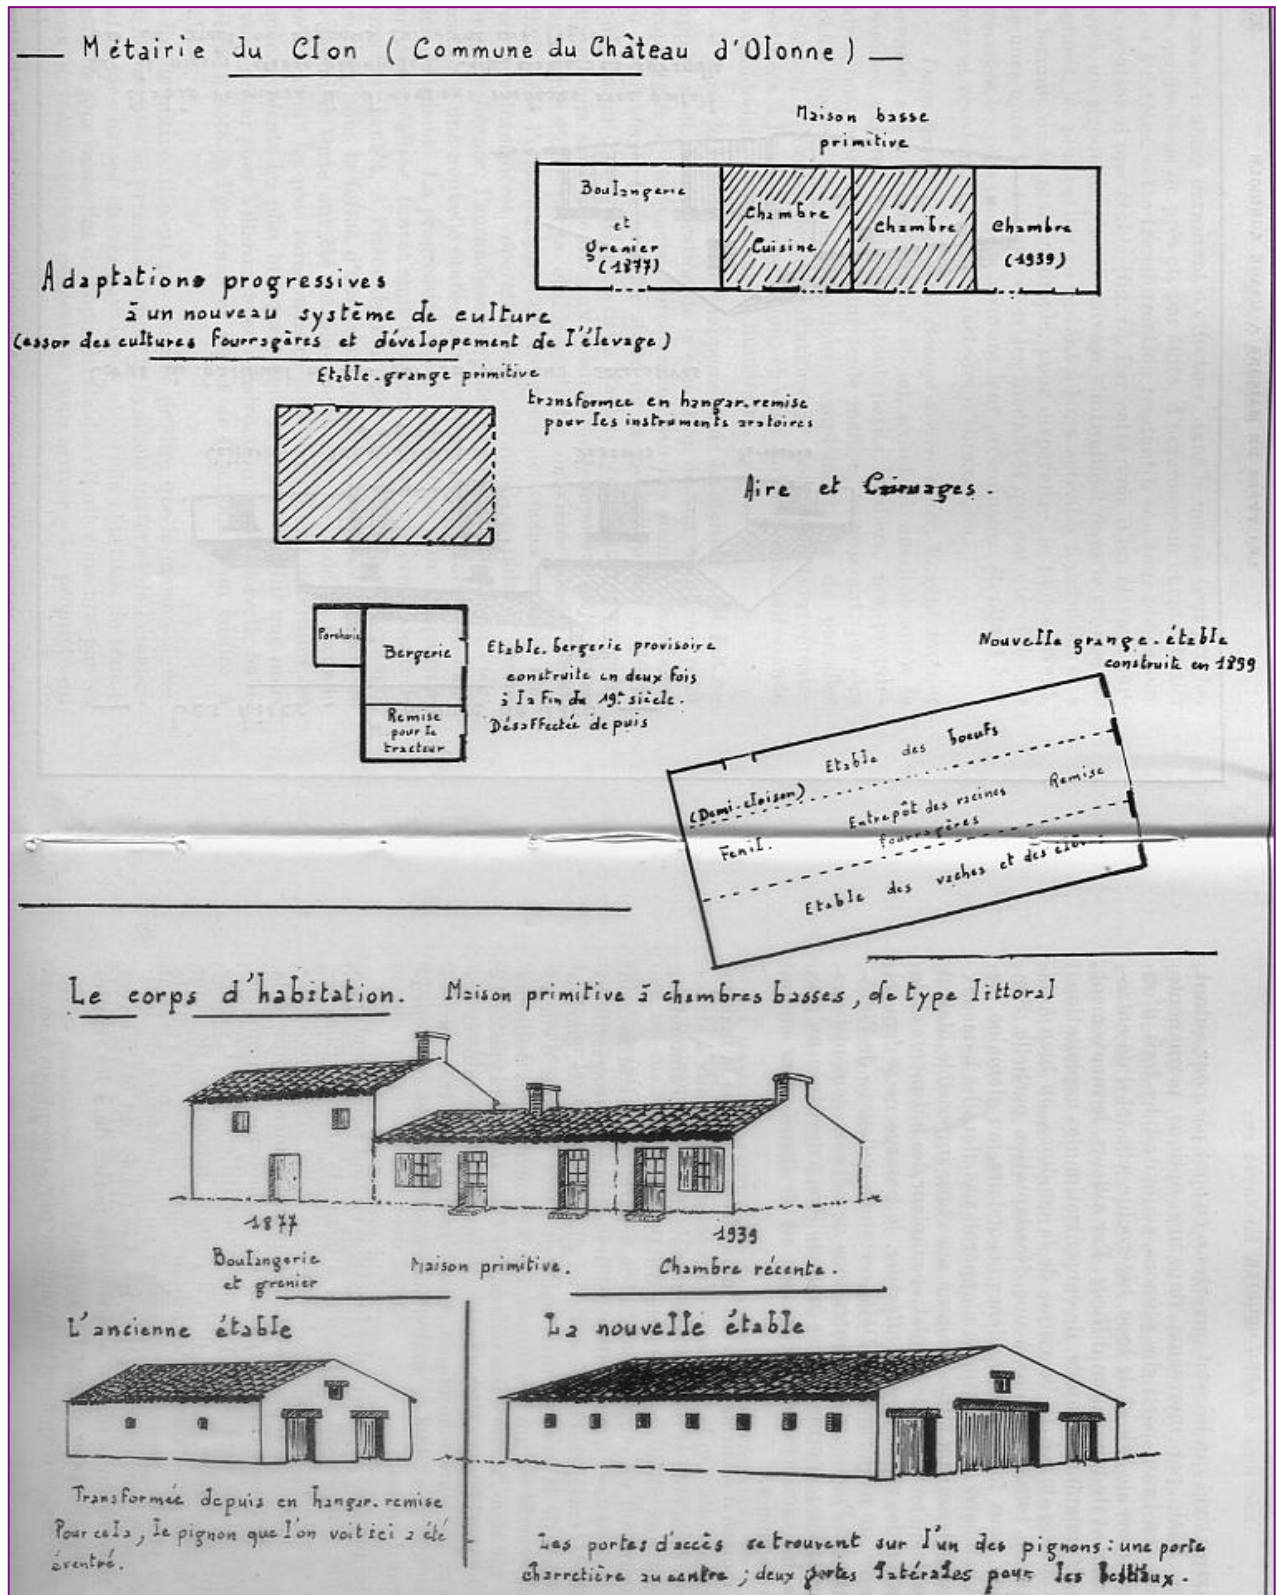 Métairie du Clon (Commune du Château d'Olonne)
Maison basse
primitive
Boulangerie
et
grenier
(1877)
Chambre
Cuisine
Chambre
Chambre
(1939)
Adaptations progressives
à un nouveau système de culture
(essor des cultures fourragères et développement de l'élevage)
Etable-grange primitive
transformée en hangar-remise
pour les instruments aratoires
Aire et
Porcherie
Bergerie
Remise
pour le
tracteur
Etable-bergerie provisoire
construite en deux fois
à la fin du 19e siècle.
Désaffectée depuis
Nouvelle grange-étable
construite en 1899
Etable des boeufs
(Demi-cloison)
Entrepôt des racines
fourragères
Remise
Fenil.
Etable des vaches et des
Le corps d'habitation. Maison primitive à chambres basses, de type littoral
1877
Boulangerie
et grenier
Maison primitive.
1939
Chambre récente.
L'ancienne étable
Transformée depuis en hangar-remise
Pour cela, le pignon que l'on voit ici a été
éventré.
La nouvelle étable
Les portes d'accès se trouvent sur l'un des pignons : une porte
charretière au centre ; deux portes latérales pour les bestiaux.